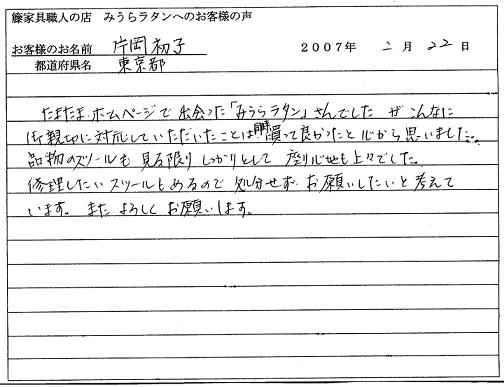 籐家具職人の店　みうらラタンへのお客様の声
お客様のお名前　片岡初子　2007年 二月 22日
都道府県名　東京都
たまたまホームページで出会った「みうらラタン」さんでした がこんなに
御親切に対応していただいたことは 買って良かったと心から思いました。
品物のスツールも見る限りしっかりとして 座り心地も上々でした。
修理したいスツールもあるので処分せず お願いしたいと考えて
います。また よろしくお願いします。